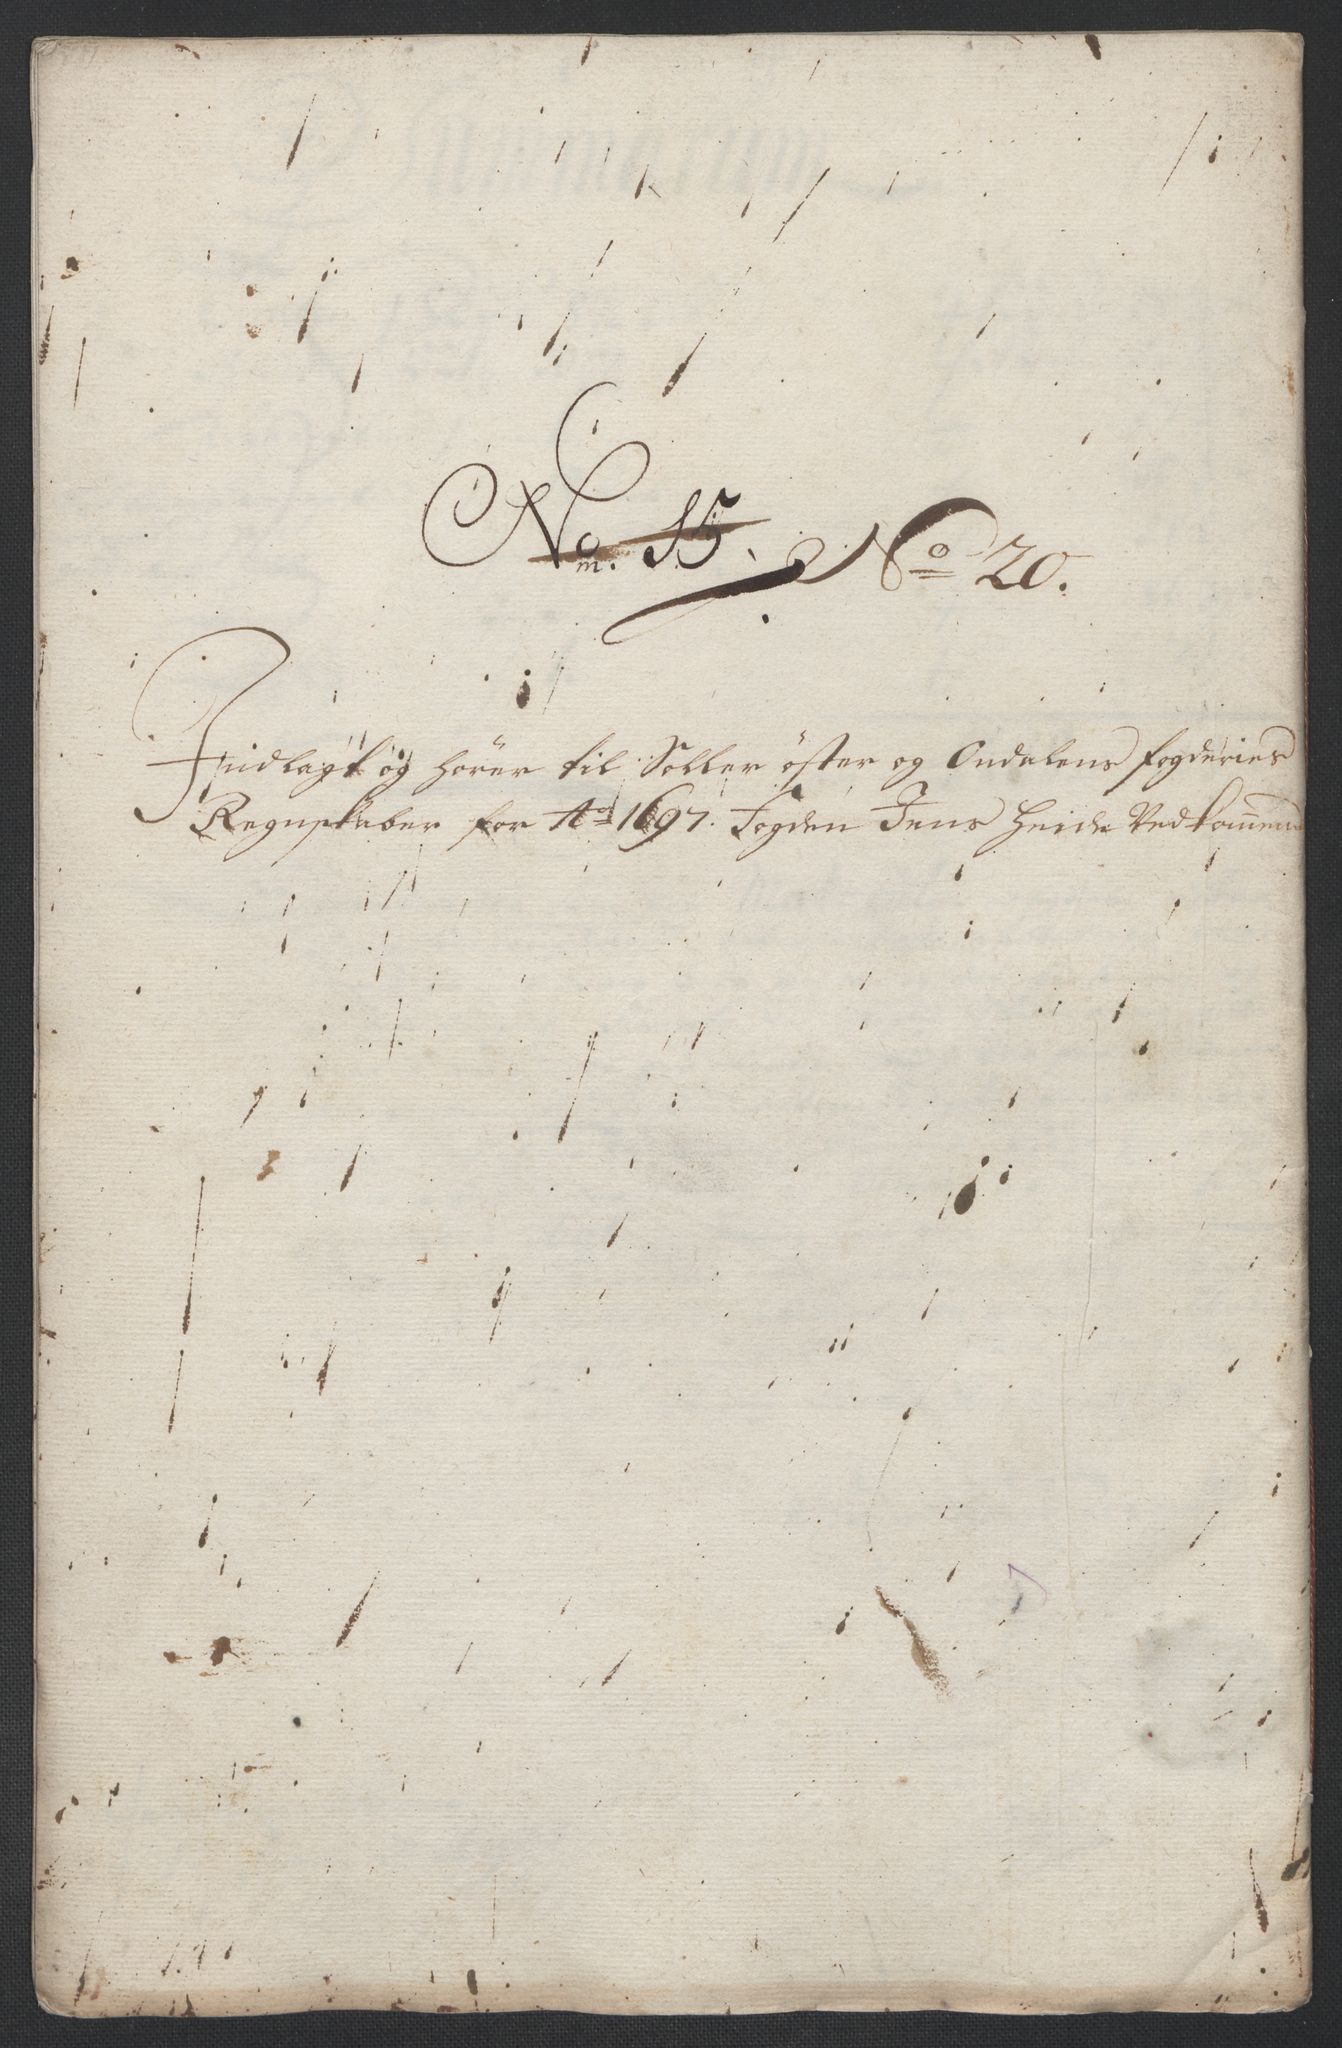 No. 15. No 20.
Indlagt og hører til Soller öster og Ondalens fogderies
Regnskaber for Ao 1697. Fogden Jens Heide Vedkommen